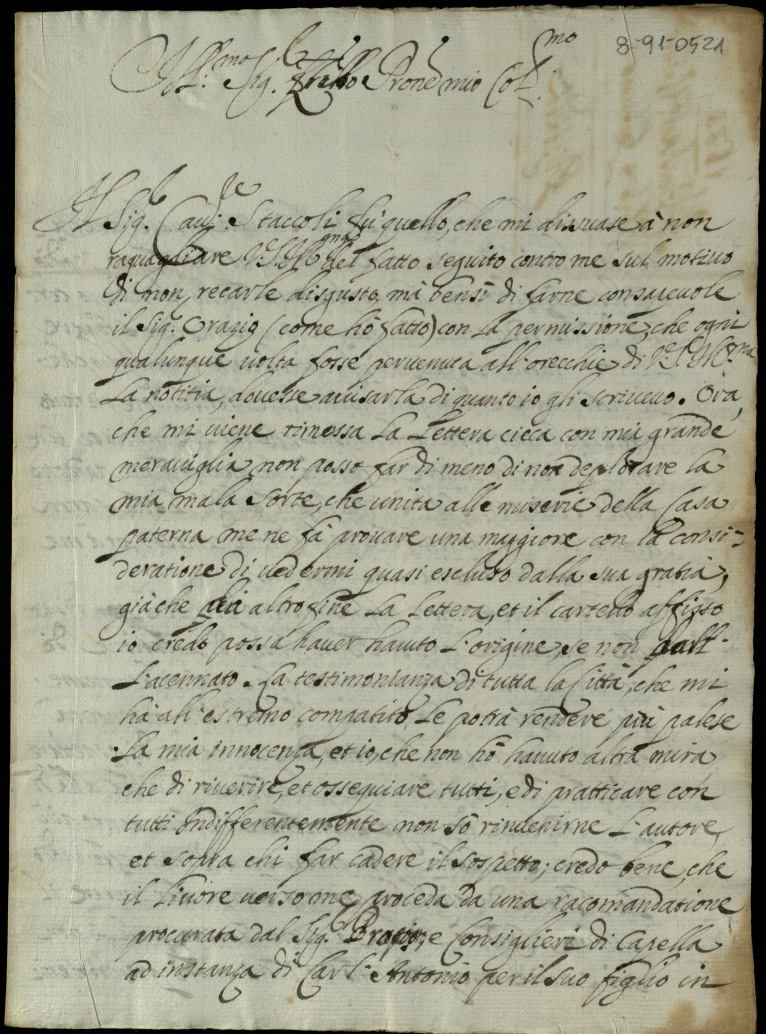 8-91-0521
Ill.mo Sig.r Prone mio Col.mo
Il Sig.r Cau.re Staccoli fù quello, che mi disuase à non
raguagliare V.S. Ill.ma del fatto seguito contro me sul motiuo
di non recarle disgusto, mà bensì di farne consapeuole
il Sig.r Orazio (come hò fatto) con la permissione, che ogni
qualunque uolta fosse peruenuta all'orecchie di V.S. Ill.ma
la notitia, douesse auisarla di quanto io gli scriueuo. Ora,
che mi uiene rimessa la lettera cieca con mia grande
merauiglia non posso far di meno di non deplorare la
mia mala sorte, che unita alle miserie della Casa
paterna me ne fà prouare una maggiore con la consi=
deratione di uedermi quasi escluso dalla sua gratia,
già che altro fine la lettera, et il cartello affisso
io credo possa hauer hauuto l'origine, se non dall'
l'acennato. La testimonianza di tutta la Città, che mi
hà all'estremo compatito le potrà rendere più palese
la mia innocenza, et io, che non hò hauuto altra mira
che di riuerire, et ossequiare tutti, e di pratticare con
tutti indifferentemente non sò rinuenirne l'autore,
et sopra chi far cadere il sospetto; credo bene, che
il liuore uerso me proceda da una racomandatione
procurata dal Sig.r e Consiglieri di Capella
ad instanza di Carl'Antonio per il suo figlio in